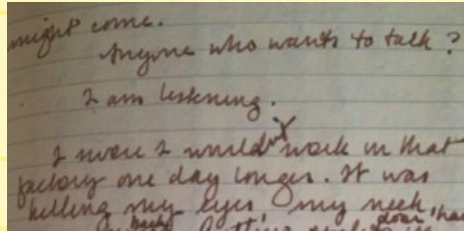 might come.
Anyone who wants to talk?
I am listening.
I swore I wouldn't work in that
factory one day longer. It was
killing my eyes, my neck,